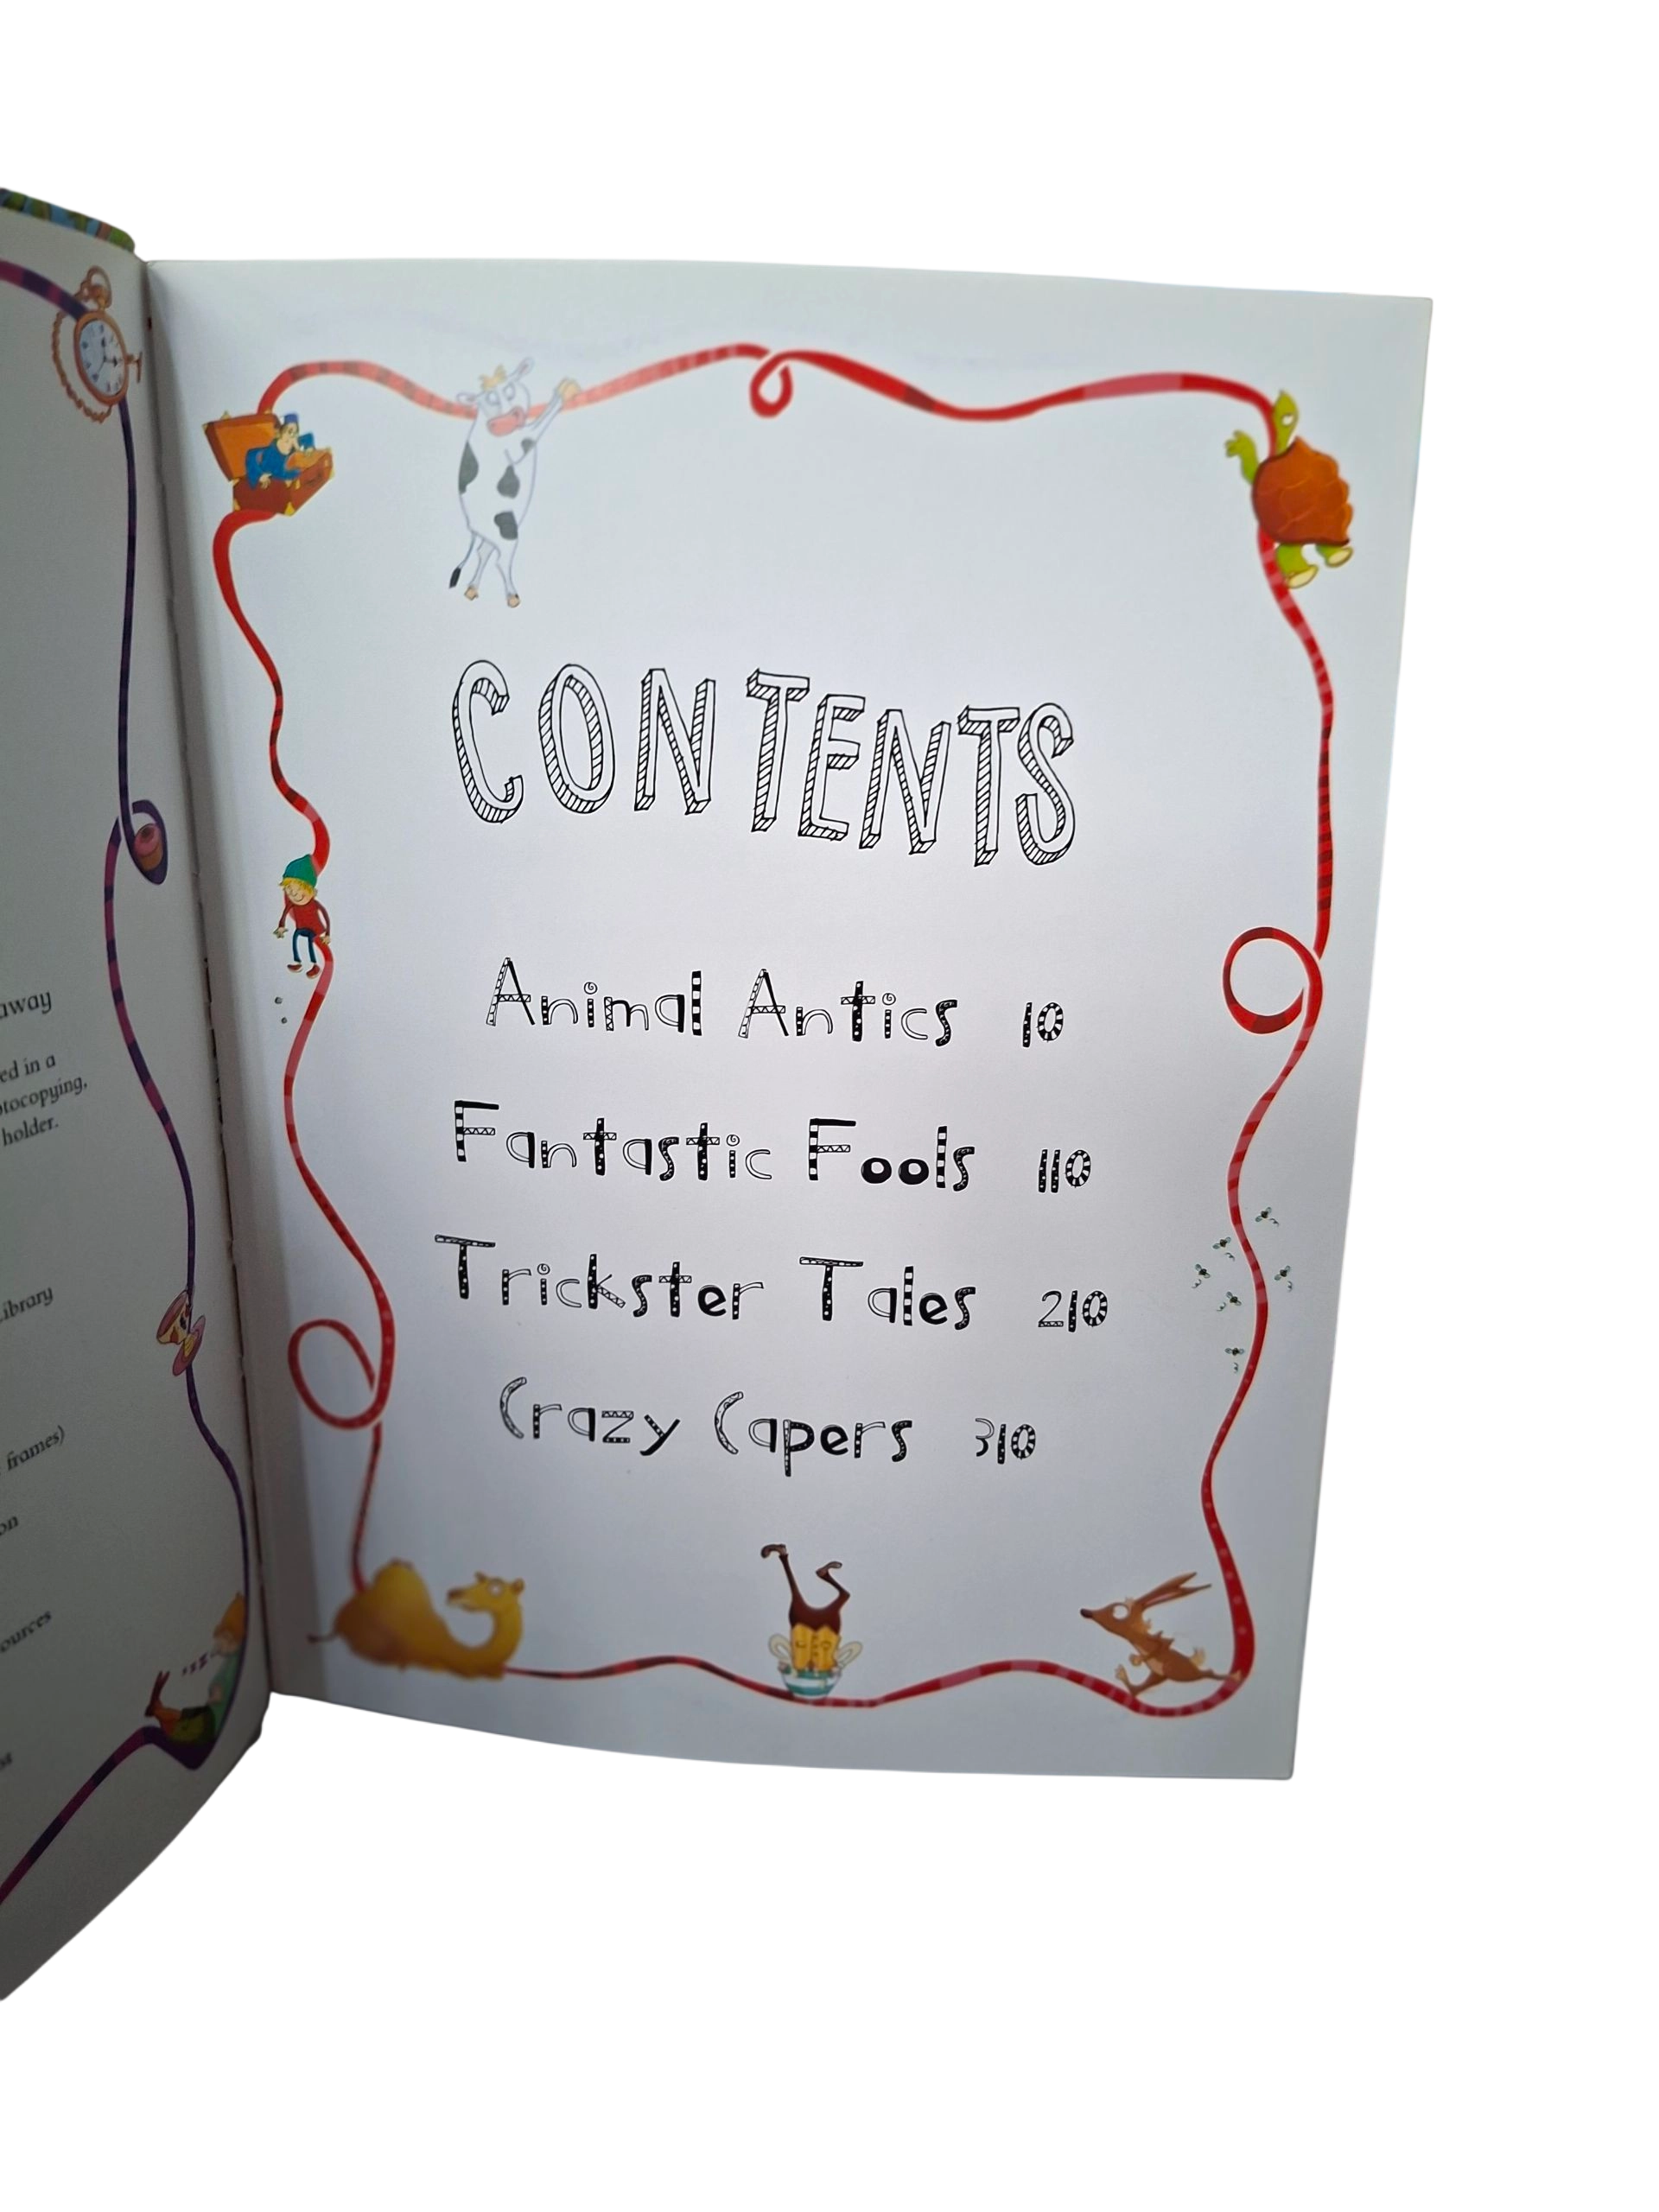 away
ed in a
tocopying,
holder.
ibrary
frames)
on
ources
CONTENTS
Animal Antics 10
Fantastic Fools 110
Trickster Tales 210
Crazy Capers 310